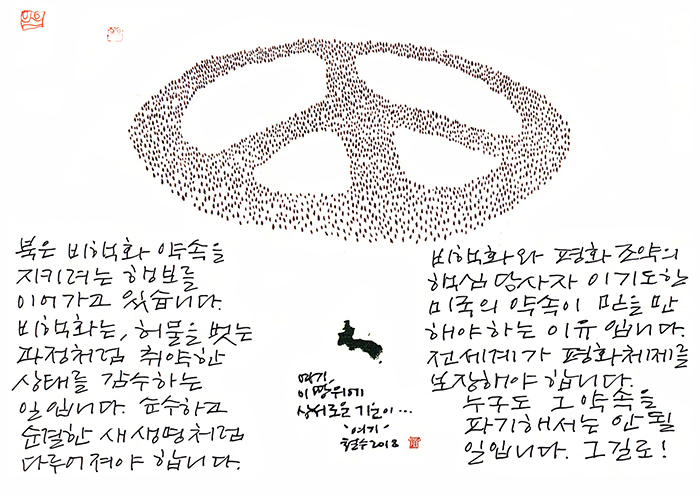 북은 비핵화 약속을
지키려는 행보를
이어가고 있습니다.
비핵화는, 허물을 벗는
과정처럼 취약한
상태를 감수하는
일입니다. 순수하고
순결한 새생명처럼
다루어져야 합니다.
여기,
이 땅위에
상서로운 기운이...
'여기'
철수 2018
비핵화와 평화조약의
핵심 당사자이기도한
미국의 약속이 믿을만
해야 하는 이유입니다.
전세계가 평화체제를
보장해야 합니다.
누구도 그 약속을
파기해서는 안될
일입니다. 그길로!